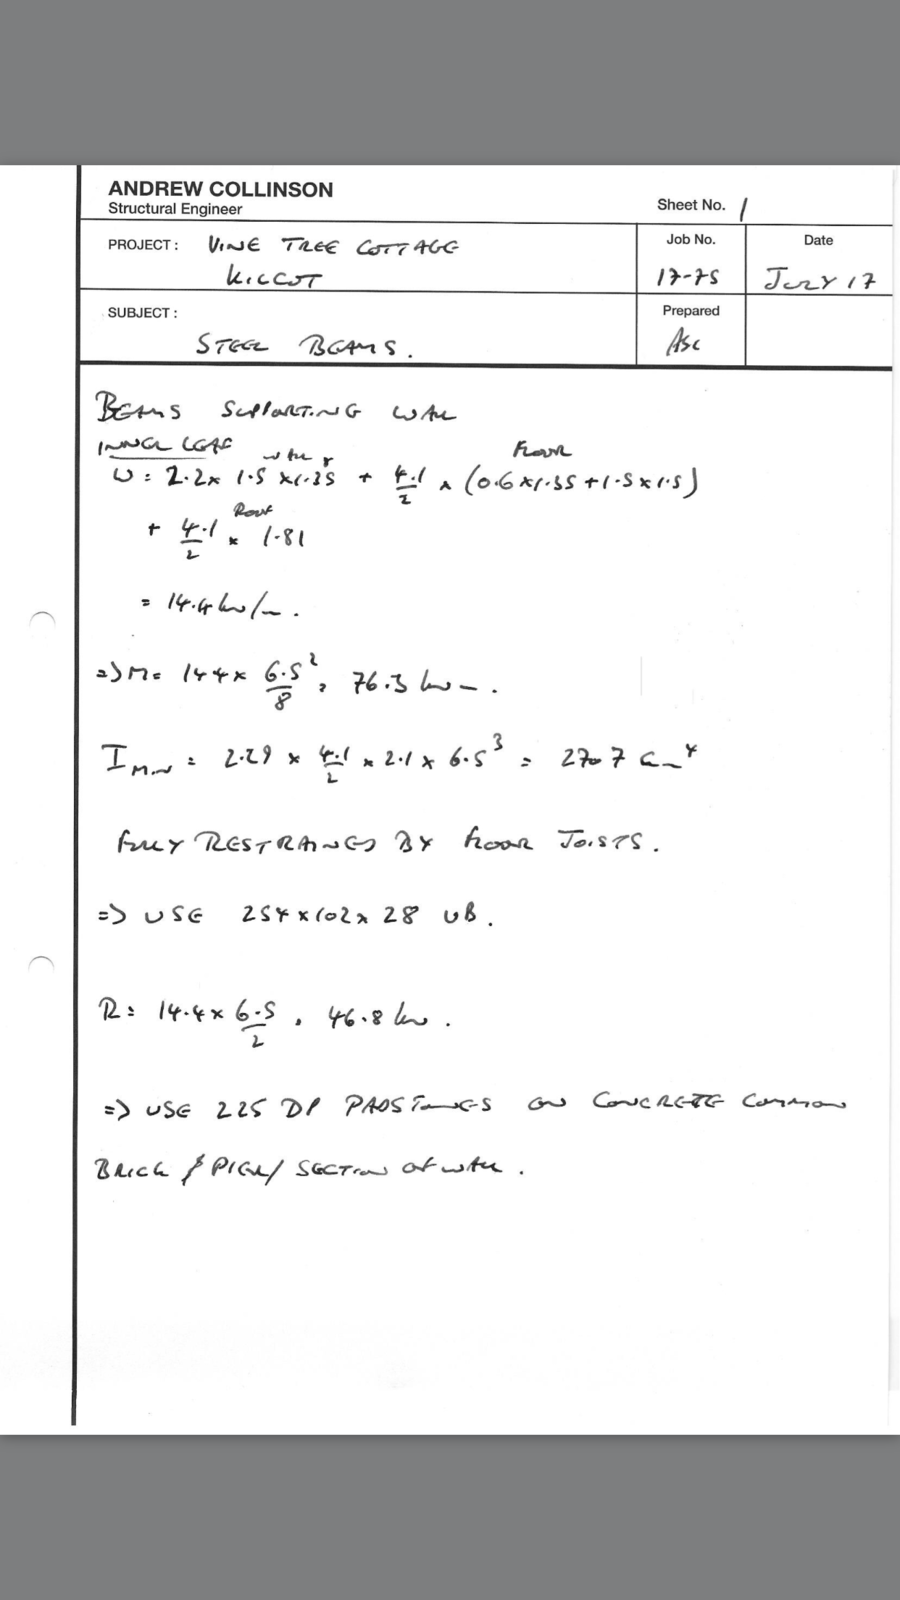 ANDREW COLLINSON
Structural Engineer
Sheet No. 1
PROJECT : VINE TREE COTTAGE
KILCOT
Job No.
17-75
Date
JULY 17
SUBJECT :
STEEL BEAMS.
Prepared
ASC
BEAMS SUPPORTING WALL
INNER LEAF
WALL FLOOR
W = 2.2 x 1.5 x 1.35 + 4.1/2 x (0.6 x 1.35 + 1.5 x 1.5)
ROOF
+ 4.1/2 x 1.81
= 14.4 kN/m.
=> M = 14.4 x 6.5²/8 = 76.3 kNm.
I MIN = 2.29 x 4.1/2 x 2.1 x 6.5³ = 2707 cm⁴
FULLY RESTRAINED BY FLOOR JOISTS.
=> USE 254 x 102 x 28 UB.
R = 14.4 x 6.5/2 = 46.8 kN.
=> USE 225 DP PADSTONES ON CONCRETE COMMON
BRICK PIER/SECTION OF WALL.